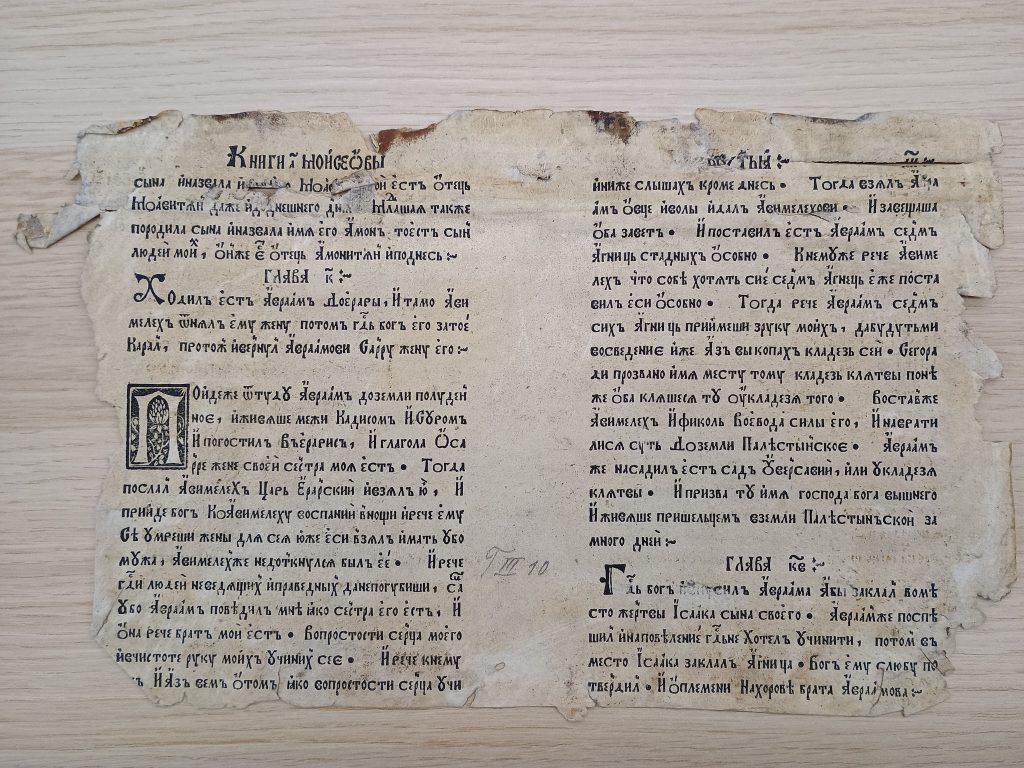 Книги а҃ Моисеѡвы
сына и҆назвала Моа ой е҆стъ ѻ҆тець
Моавитѧн даже и҆ д днешнего днѧ Млашаѧ также
породила сына и҆назвала и҆мѧ его А҆мон тоест сын
людей мой, ѻ҆нже е҆ст ѻ҆тець А҆монитѧн и҆поднесь :~
ГЛАВА к҃ :~
Ходилъ е҆стъ А҆враамъ Доерары, И҆тамо А҆ви
мелехъ ѿнѧлъ е҆му жену потомъ гдь богъ е҆го затое
Карал, протож и҆вернул А҆враамови Сарру жену е҆го :~
Пойдеже ѿтуду А҆враам доземли полудей
ное, и҆живѧше межи Кадисом И҆Суром
И҆погостил Въерарисъ, И҆глагола Ѻ҆са
рре жене своей сестра моѧ е҆стъ • Тогда
послал А҆вимелехъ Царь Е҆рарский и҆взѧлъ ю҆, И҆
прийде богъ КоА҆вимелеху воспании вънощи и҆рече е҆му
Се умреши жены длѧ сеѧ юже е҆си взѧл и҆мать убо
мужа, А҆вимелехже недоткнулсѧ былъ е҆е • И҆рече
гди людей несведѧщих и҆праведных данепогубиши, са
убо А҆враамъ поведилъ мне ꙗко сестра е҆го е҆сть, И҆
Ѻ҆на рече братъ мой е҆стъ • Вопростости серца моего
и҆вчистоте руку моихъ учиних сее • И҆рече кнему
И҆А҆зъ вемъ ѻ҆томъ ꙗко вопростости серца учи
бытьѧ :~
и҆ниже слышахъ кроме днесь • Тогда взѧлъ А҆вра
амъ ѻ҆вце и҆волы и҆дал А҆вимелехови • И҆ завещаша
ѻ҆ба завет • И҆поставил е҆стъ А҆враам седмъ
А҆гниць стадныхъ ѻ҆собно • Кнемуже рече А҆виме
лехъ что собе хотѧтъ сие седмъ А҆гнець е҆же поста
вилъ еси ѻ҆собно • Тогда рече А҆враамъ седмъ
сихъ А҆гниць приймеши зруку моихъ, дабудутьми
восведение и҆же А҆зъ выкопахъ кладезь сей • Сегора
ди прозвано и҆мѧ месту тому кладезь клѧтвы поне
же ѻ҆ба клѧшесѧ ту ѹ҆кладезѧ того • Воставже
А҆вимелех И҆Фиколь воевода силы его, И҆наврати
лисѧ суть Доземли Палѣстыньское • А҆враамъ
же насадилъ естъ садъ Ѻ҆версавии, и҆ли укладезѧ
клѧтвы • И҆призва ту и҆мѧ господа бога вышнего
И҆живѧше пришельцемъ вземли Палѣстыньской за
много дней :~
ГЛАВА кв҃ :~
Гдь богъ А҆враама А҆бы заклал вомѣ
сто жертвы І҆саака сына своего • А҆враамже поспѣ
шил и҆наповѣление гдьне Хотел учинити, потом въ
место І҆саака заклалъ А҆гница • Богъ е҆му слюбу по
твердил • И҆ѻплемени Нахоровѣ брата А҆враамова :~
T III 10